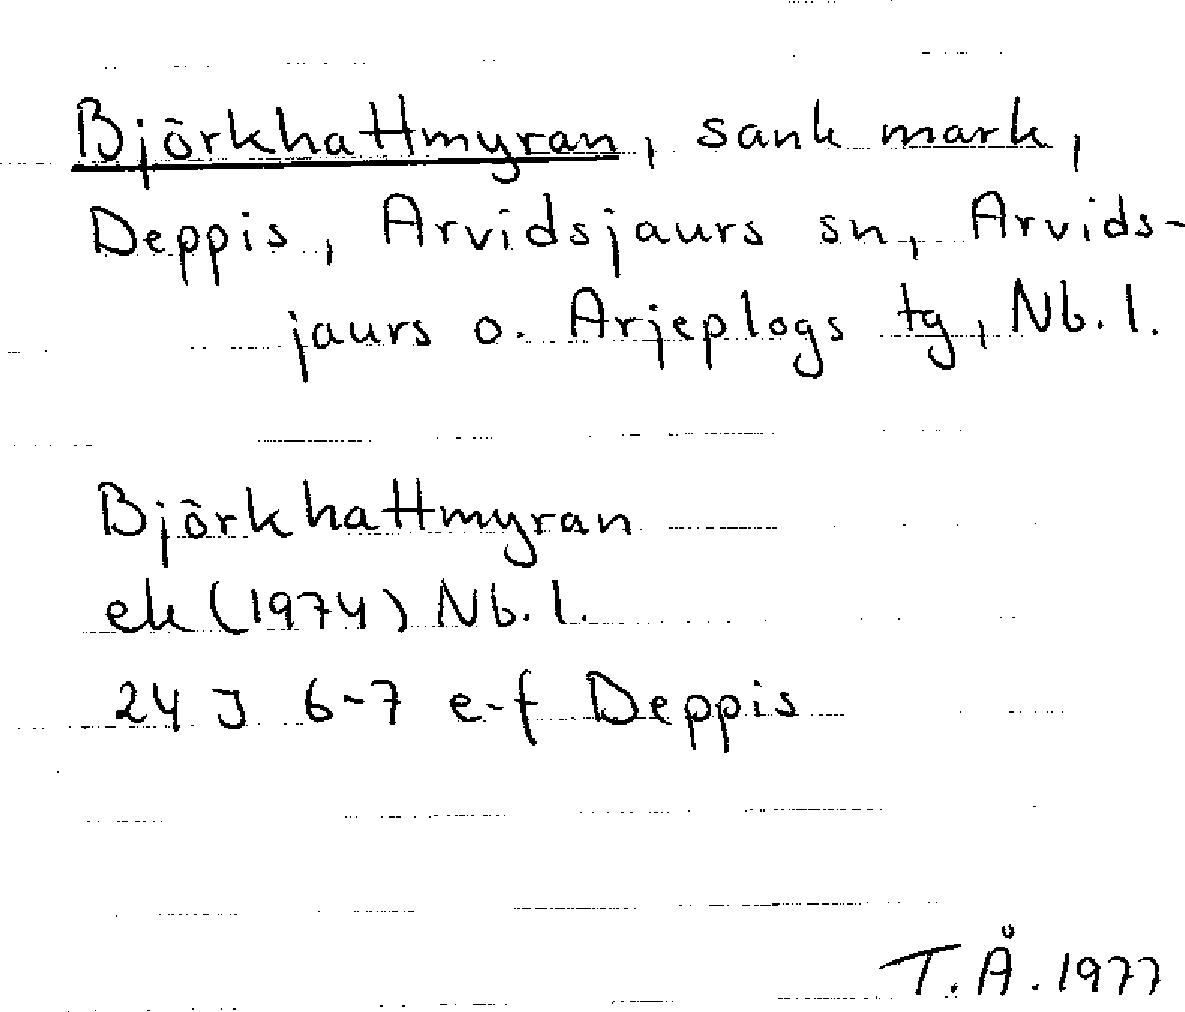 Björkhattmyran, sank mark,
Deppis, Arvidsjaurs sn, Arvids-
jaurs o. Arjeplogs tg, Nb. l.
Björkhattmyran
ek (1974) Nb. l.
24 J 6-7 e-f Deppis
T. Å. 1977